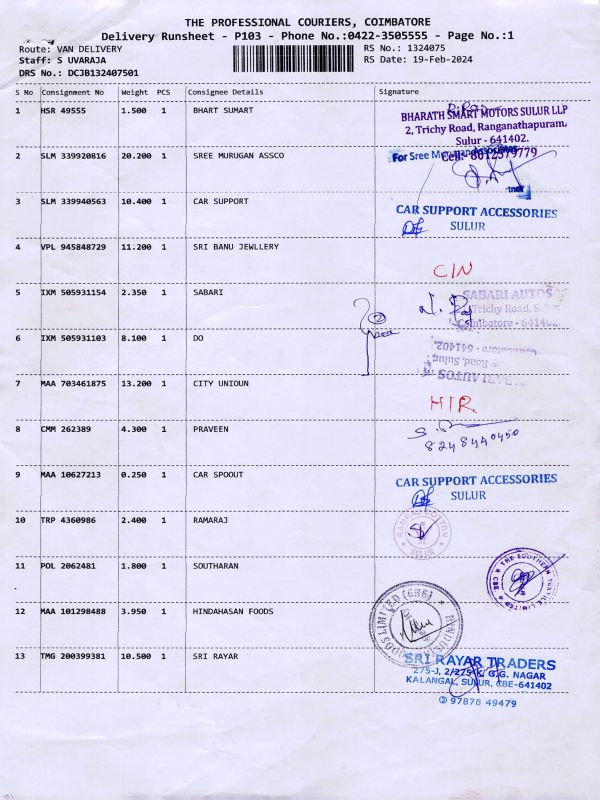 THE PROFESSIONAL COURIERS, COIMBATORE
Delivery Runsheet - P103 - Phone No.:0422-3505555 - Page No.:1
Route: VAN DELIVERY
RS No.: 1324075
Staff: S UVARAJA
RS Date: 19-Feb-2024
DRS No.: DCJB132407501
S No Consignment No Weight PCS Consignee Details Signature
1 HSR 49555 1.500 1 BHART SUMART
BHARATH SMART MOTORS SULUR LLP
2, Trichy Road, Ranganathapuram,
Sulur - 641402.
Cell: 8012579779
2 SLM 339920816 20.200 1 SREE MURUGAN ASSCO
For Sree Murugan
3 SLM 339940563 10.400 1 CAR SUPPORT
CAR SUPPORT ACCESSORIES
SULUR
4 VPL 945848729 11.200 1 SRI BANU JEWLLERY
CIN
5 IXM 505931154 2.350 1 SABARI
SABARI AUTOS
Trichy Road,
Coimbatore - 641402
6 IXM 505931103 8.100 1 DO
7 MAA 703461875 13.200 1 CITY UNIOUN
HTR
8 CMM 262389 4.300 1 PRAVEEN
8248440450
9 MAA 10627213 0.250 1 CAR SPOOUT
CAR SUPPORT ACCESSORIES
SULUR
10 TRP 4360986 2.400 1 RAMARAJ
11 POL 2062481 1.800 1 SOUTHARAN
THE SOUTHERN TEXTILE LIMITED CBE
12 MAA 101298488 3.950 1 HINDAHASAN FOODS
13 TMG 200399381 10.500 1 SRI RAYAR
SRI RAYAR TRADERS
275-J, 2/275-K, G.G. NAGAR
KALANGAL, SULUR, CBE-641402
97878 49479